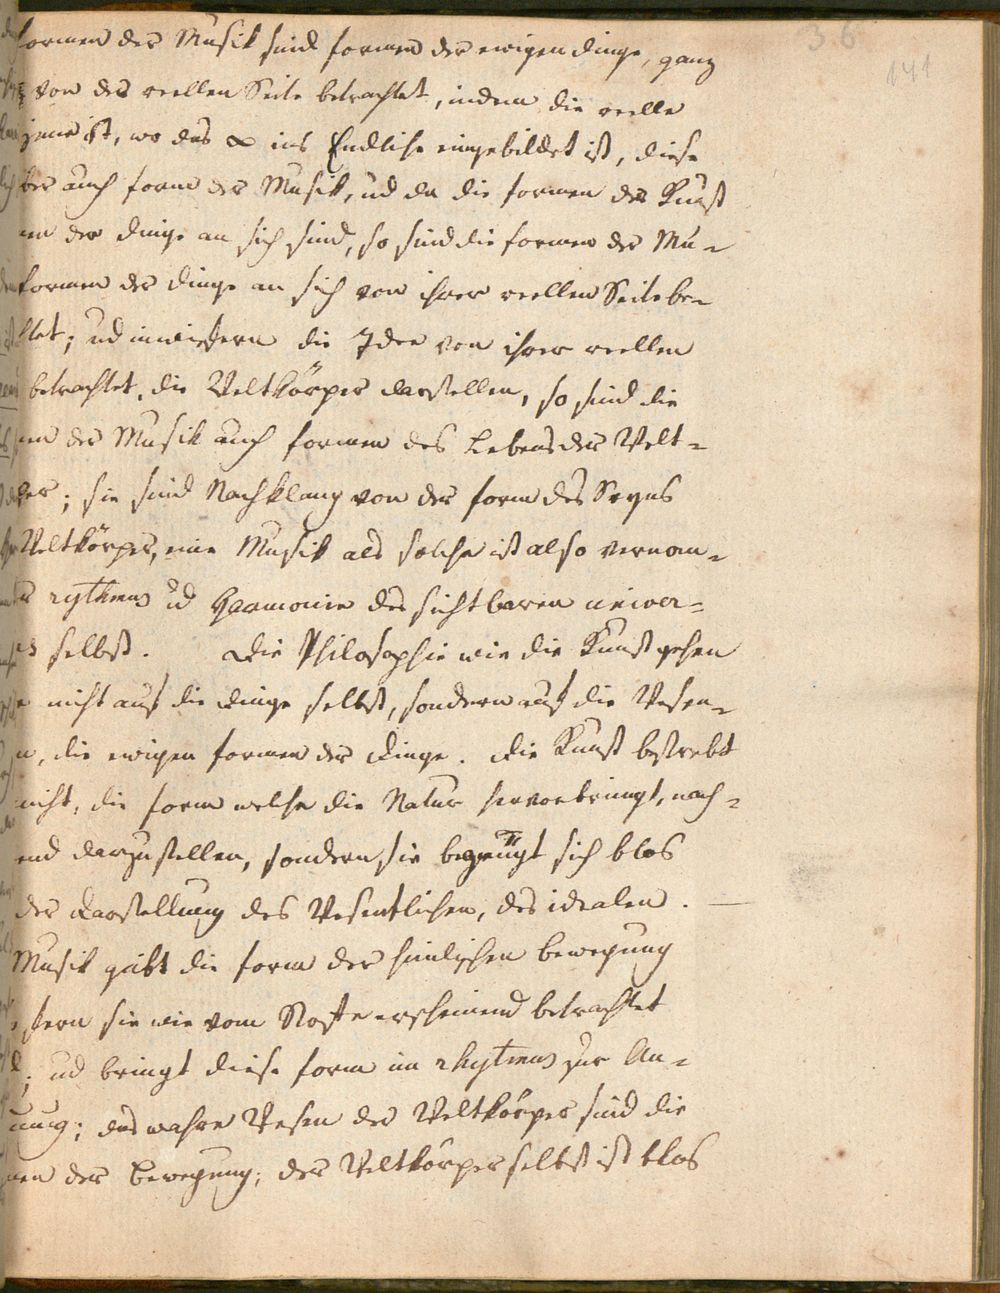 36
141
formen der Musik sind formen der ewigen dinge, ganz
von der reellen Seite betrachtet, indem die reelle
jene ist, wo das ∞ ins Endliche eingebildet ist, diese
ber auch form der Musik, ud da die formen der Kunst
en der dinge an sich sind, so sind die formen der Mu-
formen der dinge an sich von ihrer reellen Seite be-
htet; ud inwiefern die Idee von ihrer reellen
betrachtet, die Weltkörper darstellen, so sind die
en der Musik auch formen des Lebens der Welt-
per; sie sind Nachklang von der form des Seyns
Weltkörper, eine Musik als solche ist also vernom-
rytmus ud Harmonie des sichtbaren univer-
selbst. Die Philosophie wie die Kunst gehen
nicht auf die dinge selbst, sondern auf die Wesen-
n, die ewigen formen der Dinge. Die Kunst bestrebt
nicht, die form welche die Natur hervorbringt, nach-
end darzustellen, sondern sie begnügt sich blos
der Darstellung des Wesentlichen, des idealen. —
Musik gibt die form der himlischen bewegung
fern sie wie vom Stoffe erscheinend betrachtet
d; ud bringt diese form im rhytmus zur An-
uung; das wahre Wesen der Weltkörper sind die
men der Bewegung; der Weltkörper selbst ist blos